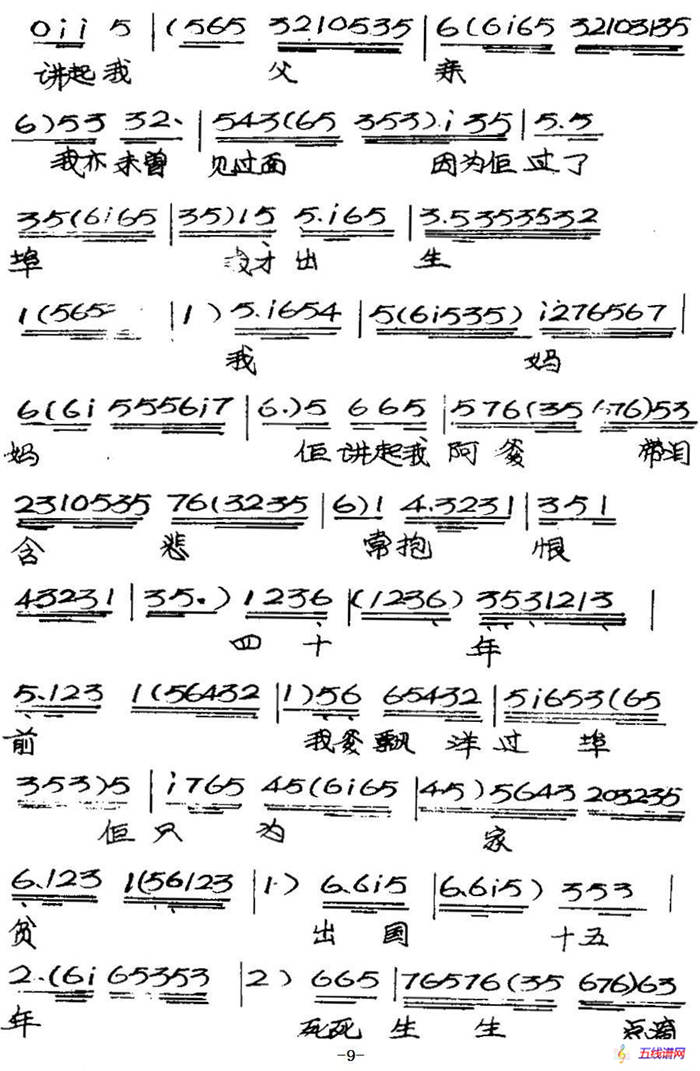 0 i i 5 | ( 565 3210535 | 6 ( 6i65 32103135
讲起我 父 亲
6 ) 53 32. | 543 ( 65 353 ) . i 35 | 5.5
我亦未曾 见过面 因为佢过了
35 ( 6i65 | 35 ) 15 5.i65 | 3.5353532
埠 我才出 生
1 ( 565 | 1 ) 5.i654 | 5 ( 6i535 ) i276567 |
我 妈
6 ( 6i 5556i7 | 6. ) 5 665 | 576 ( 35 676 ) 53
妈 佢讲起我 阿爹 带泪
2310535 76 ( 3235 | 6 ) 1 4.3231 | 351
含 悲 常抱 恨
43231 | 35. ) 1236 | ( 1236 ) 3531213 |
四十 年
5.123 1 ( 56432 | 1 ) 56 65432 | 5i653 ( 65
前 我爹飘洋过 埠
353 ) 5 | i765 45 ( 6i65 | 45 ) 5643 203235
佢只 为 家
6.123 1 ( 56123 | 1. ) 6.6i5 | 6.6i5 ) 353 |
贫 出国 十五
2. ( 6i 65353 | 2 ) 665 | 76576 ( 35 676 ) 63
年 死死生 生 点滴
-9-
五线谱网